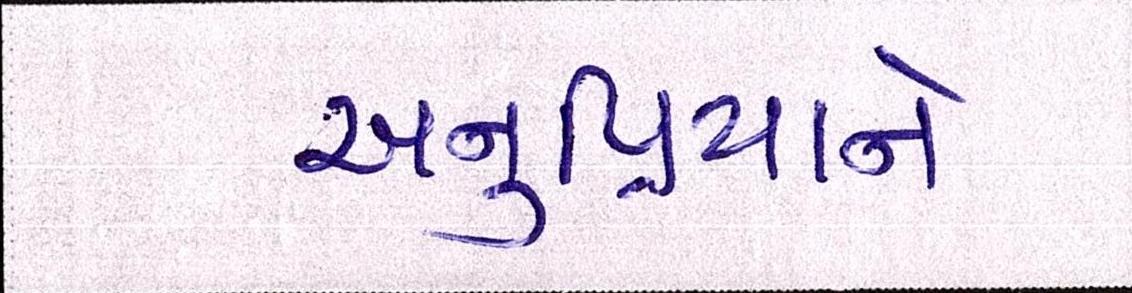 અનુપ્રિયાને